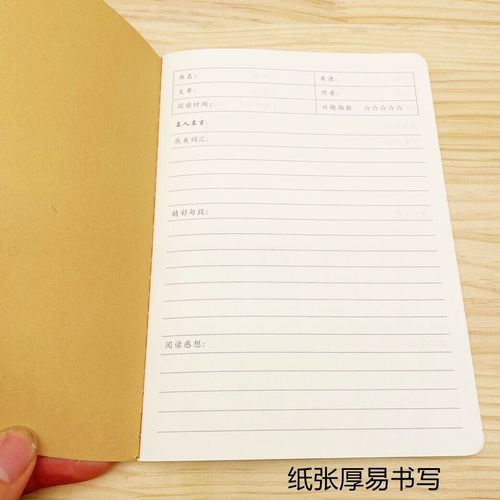 书名： 来源：
文章： 作者：
阅读时间： 兴趣指数 ☆☆☆☆☆
名人名言：
优美词汇：
精彩句段：
阅读感想：
纸张厚易书写